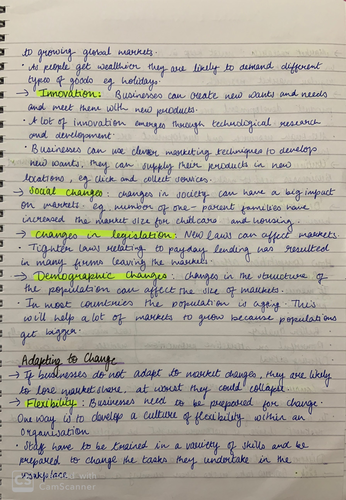 to growing global markets.
• As people get wealthier they are likely to demand different
types of goods eg holidays.
→ Innovation: Businesses can create new wants and needs
and meet them with new products.
• A lot of innovation emerges through technological research
and development.
• Businesses can use clever marketing techniques to develop
new wants, they can supply their products in new
locations, eg click and collect services.
→ Social changes: changes in society can have a big impact
on markets. eg number of one-parent families have
increased the market size for childcare and housing.
→ Changes in legislation: New laws can affect markets
• Tighter laws relating to payday lending has resulted
in many firms leaving the market.
→ Demographic Changes: changes in the structure of
the population can affect the size of markets.
• In most countries the population is ageing. This
will help a lot of markets to grow because populations
get bigger.
Adapting to Change
→ If businesses do not adapt to market changes, they are likely
to lose market share, at worst they could collapse
→ Flexibility: Businesses need to be prepared for change.
One way is to develop a culture of flexibility within an
organisation
• Staff have to be trained in a variety of skills and be
prepared to change the tasks they undertake in the
workplace.
CamScanner